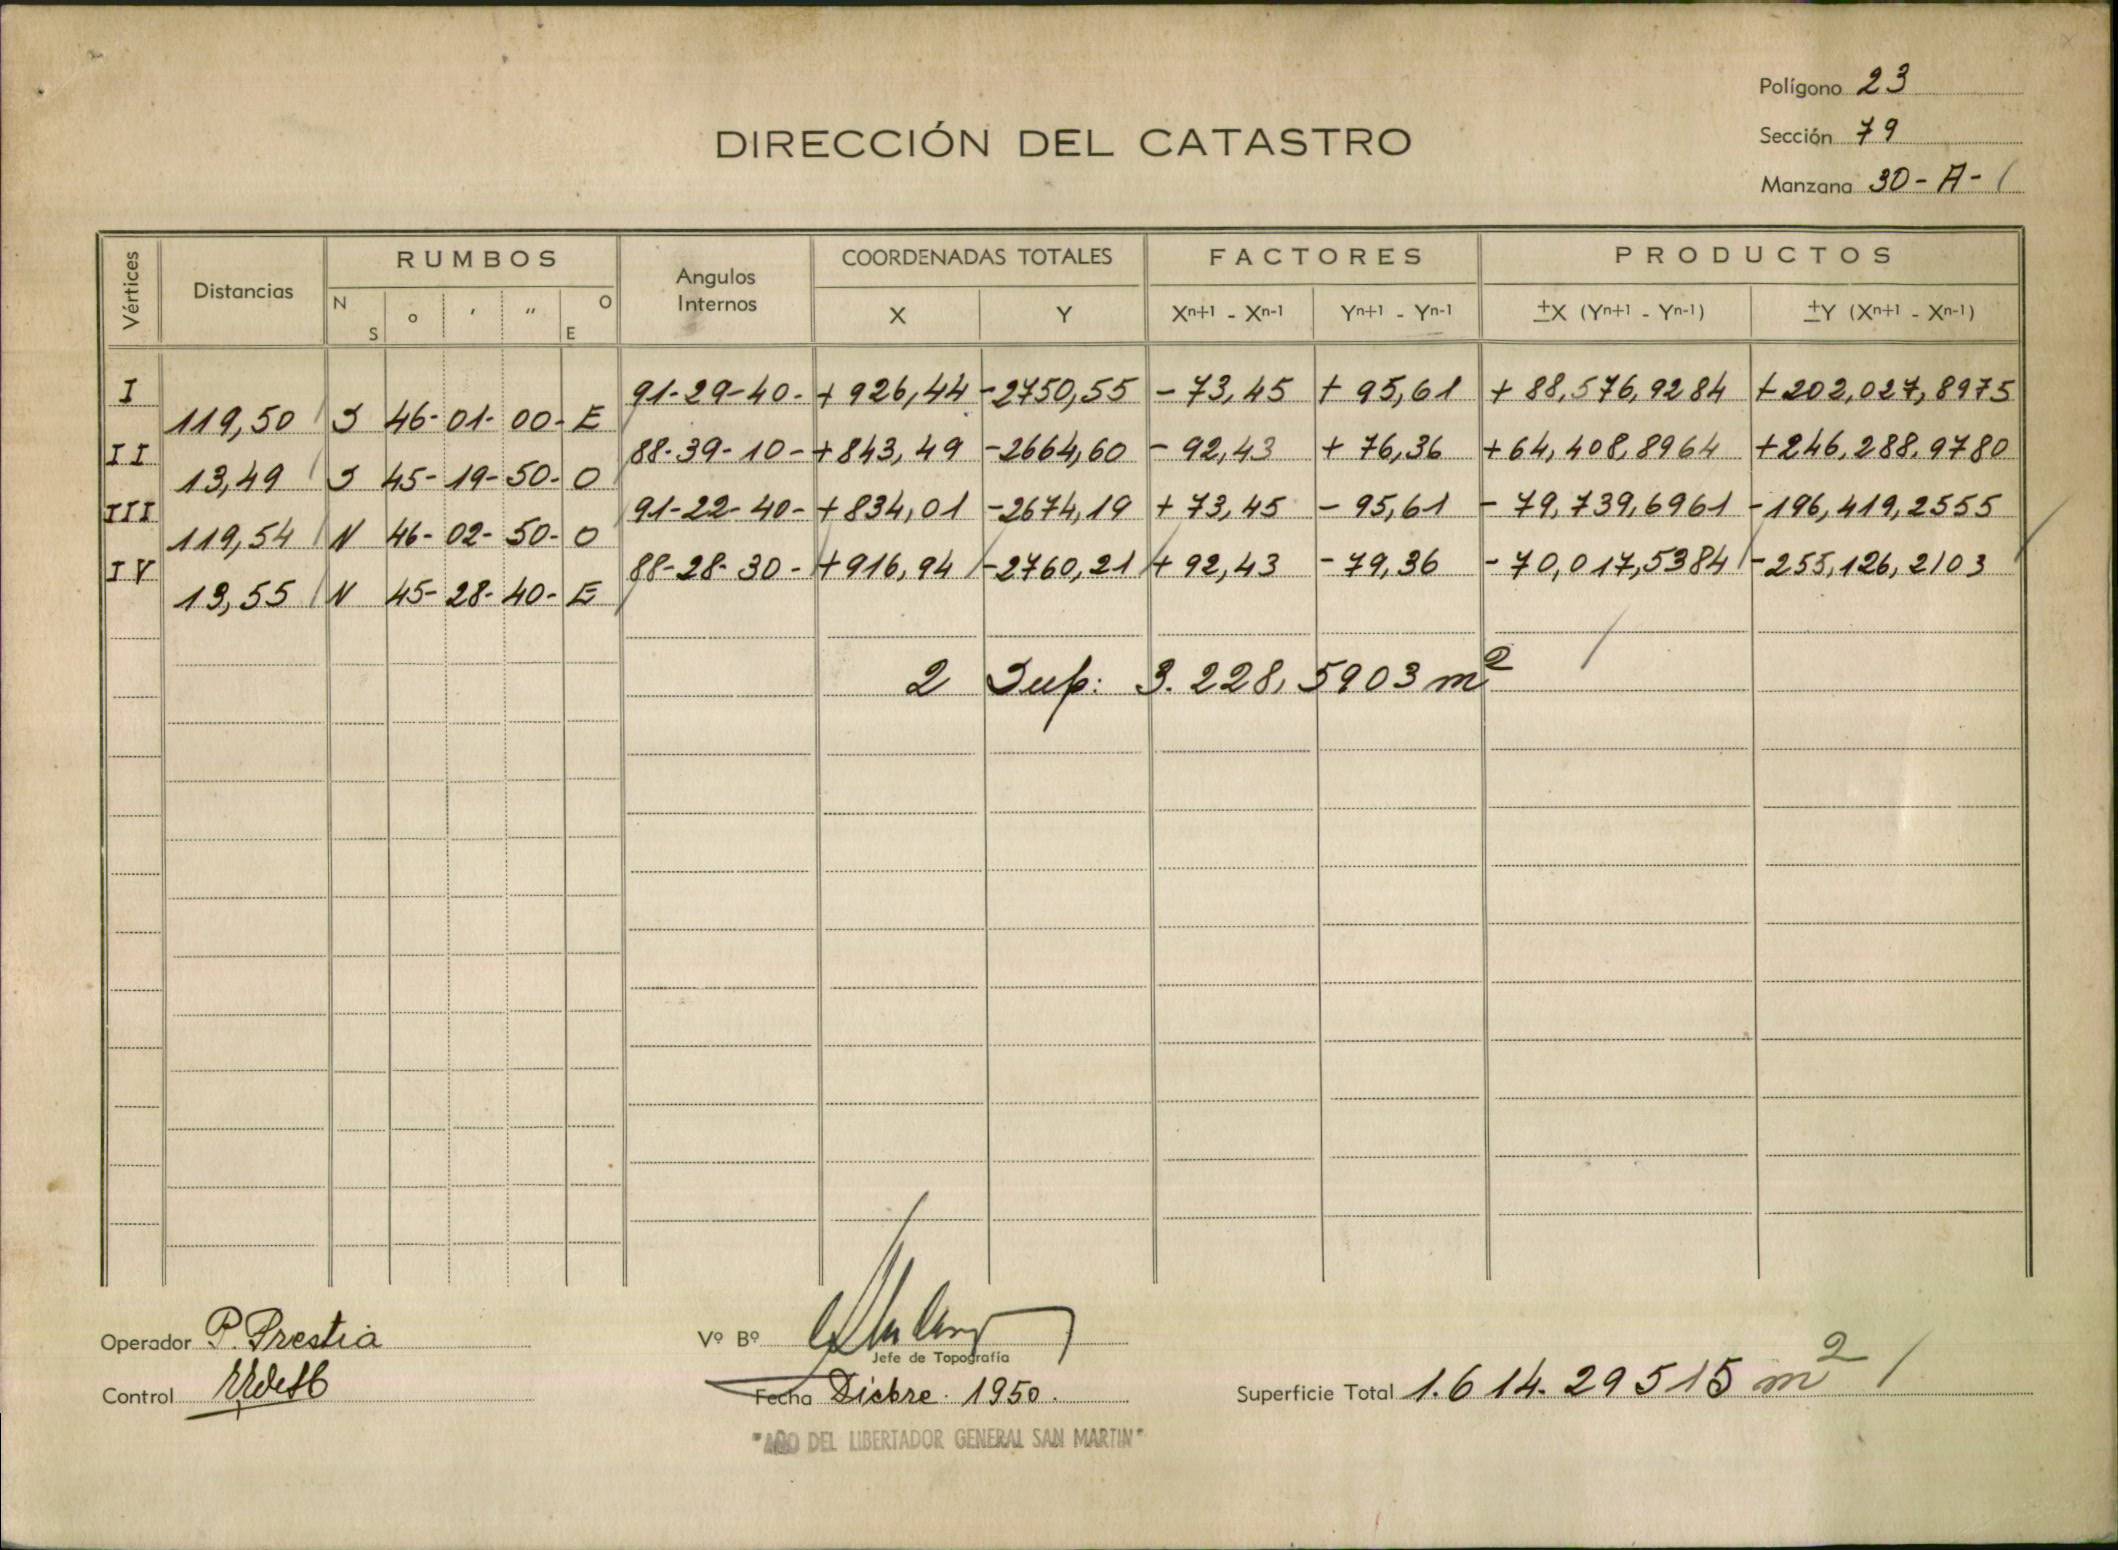 Polígono 23
DIRECCIÓN DEL CATASTRO
Sección 79
Manzana 30-A-
Vértices
Distancias
RUMBOS
N S o ′ ″ O E
Angulos Internos
COORDENADAS TOTALES
X Y
FACTORES
Xn+1 - Xn-1 Yn+1 - Yn-1
PRODUCTOS
±X (Yn+1 - Yn-1) ±Y (Xn+1 - Xn-1)
I 91-29-40- +926,44 -2750,55 -73,45 +95,61 +88,576,9284 +202,027,8975
119,50 S 46-01-00-E
II 88-39-10- +843,49 -2664,60 -92,43 +76,36 +64,408,8964 +246,288,9780
13,49 S 45-19-50-O
III 91-22-40- +834,01 -2674,19 +73,45 -95,61 -79,739,6961 -196,419,2555
119,54 N 46-02-50-O
IV 88-28-30- +916,94 -2760,21 +92,43 -79,36 -70,017,5384 -255,126,2103
13,55 N 45-28-40-E
2 Sup: 3.228,5903 m²
Operador P. Prestia
Control
Vº Bº
Jefe de Topografía
Fecha Dicbre. 1950.
Superficie Total 1.614.29515 m²
"AÑO DEL LIBERTADOR GENERAL SAN MARTIN"